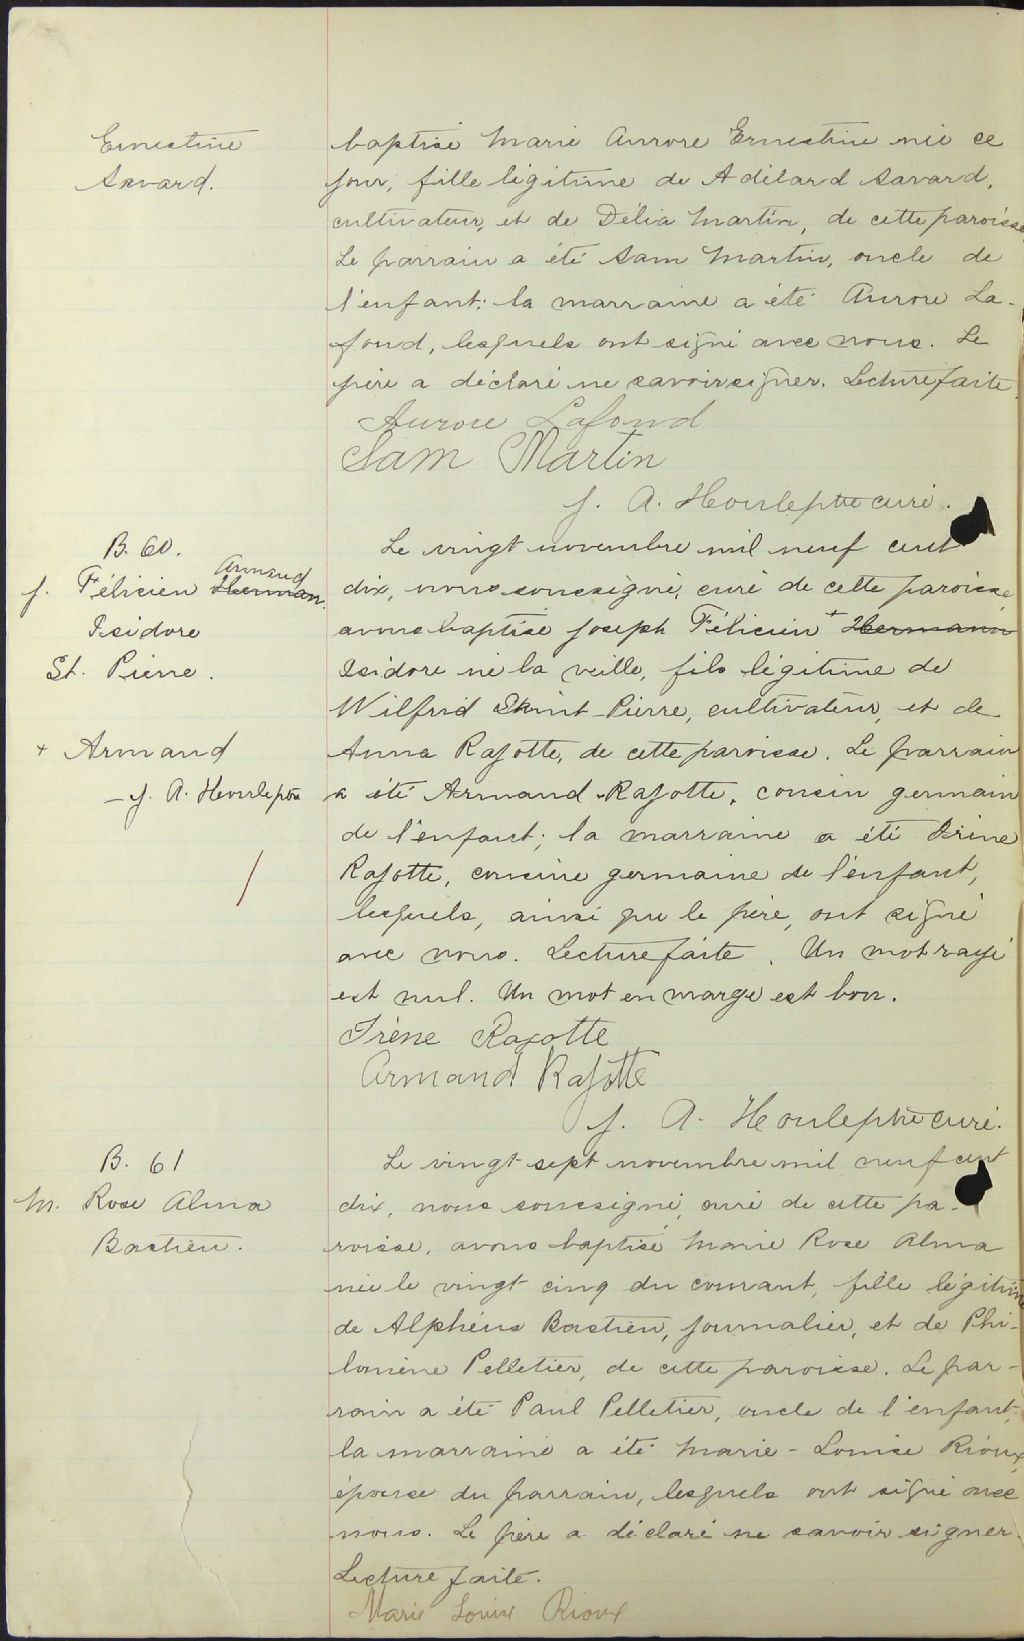 Ernestine
Savard.
baptisé Marie Aurore Ernestine née ce
jour, fille légitime de Adélard Savard,
cultivateur, et de Délia Martin, de cette paroisse
Le parrain a été Sam Martin, oncle de
l'enfant; la marraine a été Aurore La-
fond, lesquels ont signé avec nous. Le
père a déclaré ne savoir signer. Lecture faite.
Aurore Lafond
Sam Martin
J. A. Houle ptre curé.
B. 60.
J. Félicien Herman Armand
Isidore
St. Pierre.
+ Armand
- J. A. Houle ptre
Le vingt novembre mil neuf cent
dix, nous soussigné, curé de cette paroisse
avons baptisé Joseph Félicien + Hermann
Isidore né la veille, fils légitime de
Wilfrid Saint-Pierre, cultivateur, et de
Anna Rajotte, de cette paroisse. Le parrain
a été Armand Rajotte, cousin germain
de l'enfant; la marraine a été Irène
Rajotte, cousine germaine de l'enfant,
lesquels, ainsi que le père, ont signé
avec nous. Lecture faite. Un mot rayé
est nul. Un mot en marge est bon.
Irène Rajotte
Armand Rajotte
J. A. Houle ptre curé.
B. 61
M. Rose Alma
Bastien.
Le vingt sept novembre mil neuf cent
dix, nous soussigné, curé de cette pa-
roisse, avons baptisé Marie Rose Alma
née le vingt cinq du courant, fille légitime
de Alphéus Bastien, journalier, et de Phi-
lomène Pelletier, de cette paroisse. Le par-
rain a été Paul Pelletier, oncle de l'enfant;
la marraine a été Marie-Louise Rioux,
épouse du parrain, lesquels ont signé avec
nous. Le père a déclaré ne savoir signer.
Lecture faite.
Marie Louise Rioux